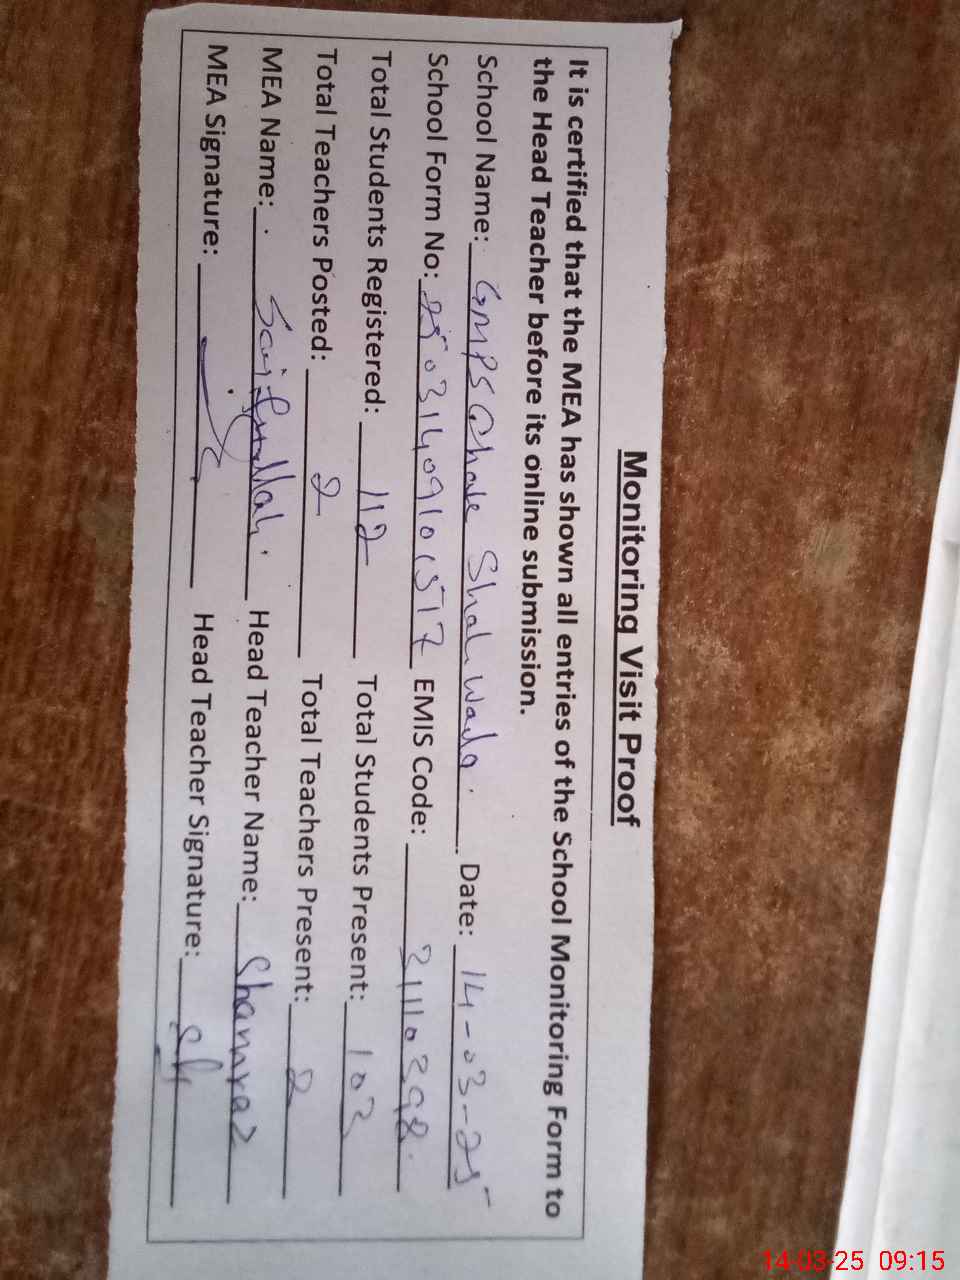 Monitoring Visit Proof
It is certified that the MEA has shown all entries of the School Monitoring Form to
the Head Teacher before its online submission.
School Name: GMPS Chale Shah Wada. Date: 14-03-25
School Form No: 25031409101517 EMIS Code: 21110398.
Total Students Registered: 112 Total Students Present: 103
Total Teachers Posted: 2 Total Teachers Present: 2
MEA Name: Saifullah. Head Teacher Name: Shamraz
MEA Signature: Head Teacher Signature:
14-03-25 09:15